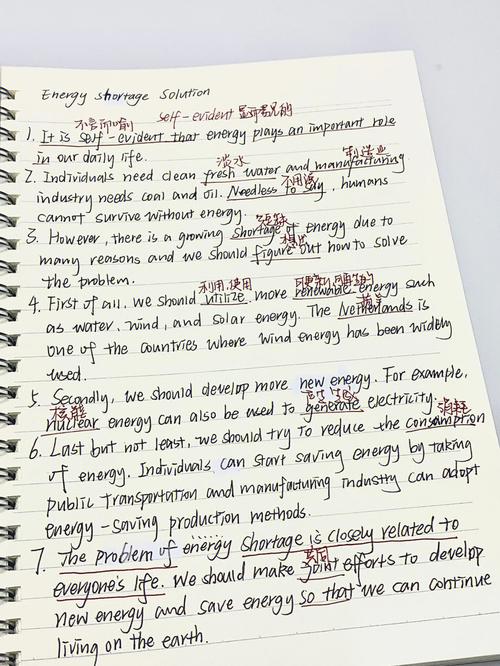 Energy shortage Solution
不言而喻 self-evident 显而易见的
1. It is self-evident that energy plays an important role
in our daily life.
淡水 制造业
2. Individuals need clean fresh water and manufacturing
不用说
industry needs coal and oil. Needless to say, humans
cannot survive without energy.
短缺
3. However, there is a growing shortage of energy due to
想出
many reasons and we should figure out how to solve
the problem.
利用,使用
4. First of all, we should utilize more renewable energy such
荷兰
as water, wind, and solar energy. The Netherlands is
one of the countries where wind energy has been widely
used.
5. Secondly, we should develop more new energy. For example,
核能 消耗
nuclear energy can also be used to generate electricity.
6. Last but not least, we should try to reduce the consumption
of energy. Individuals can start saving energy by taking
public transportation and manufacturing industry can adopt
energy-saving production methods.
7. The problem of energy shortage is closely related to
共同
everyone's life. We should make joint efforts to develop
new energy and save energy so that we can continue
living on the earth.